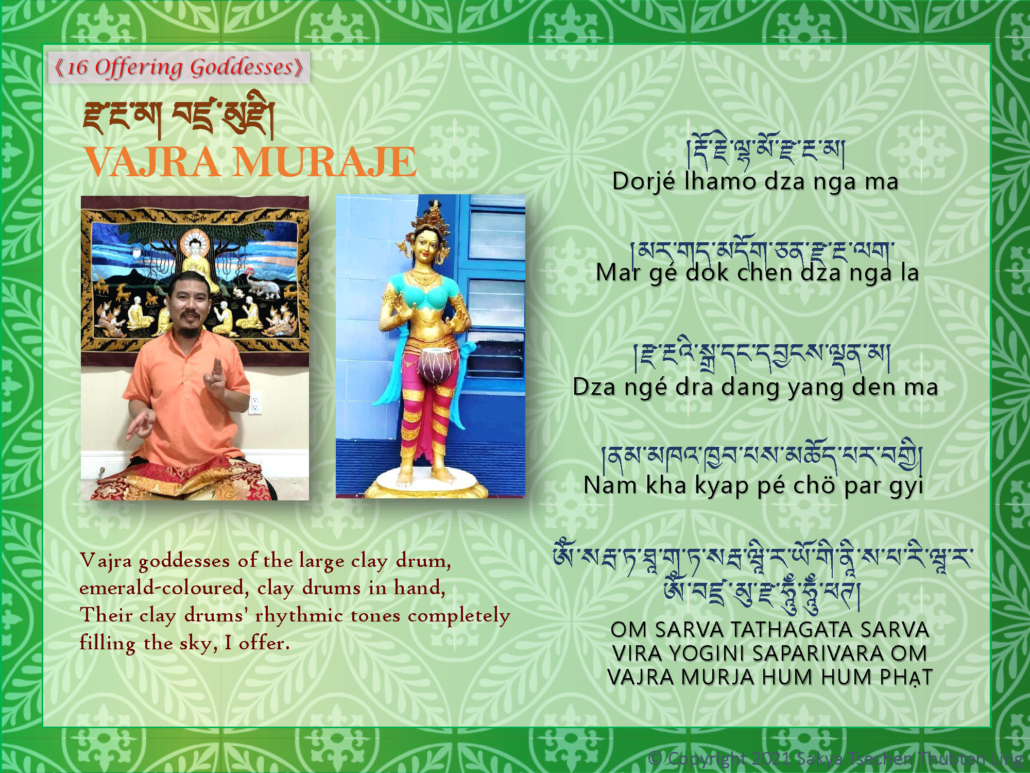 《16 Offering Goddesses》
རྫ་ང་མ། བཛྲ་མུརྫེ།
VAJRA MURAJE
།རྡོ་རྗེ་ལྷ་མོ་རྫ་ང་མ།
Dorjé lhamo dza nga ma
།མར་གད་མདོག་ཅན་རྫ་ང་ལག་
Mar gé dok chen dza nga la
།རྫ་ངའི་སྒྲ་དང་དབྱངས་ལྡན་མ།
Dza ngé dra dang yang den ma
།ནམ་མཁའ་ཁྱབ་པས་མཆོད་པར་བགྱི།
Nam kha kyap pé chö par gyi
ཨོཾ་སརྦ་ཏ་ཐཱ་ག་ཏ་སརྦ་ཝཱི་ར་ཡོ་གི་ནཱི་ས་པ་རི་ཝཱ་ར་
ཨོཾ་བཛྲ་མུ་རྫ་ཧཱུྃ་ཧཱུྃ་ཕཊ།
OM SARVA TATHAGATA SARVA
VIRA YOGINI SAPARIVARA OM
VAJRA MURJA HUM HUM PHẠT
Vajra goddesses of the large clay drum,
emerald-coloured, clay drums in hand,
Their clay drums' rhythmic tones completely
filling the sky, I offer.
© Copyright 2021 Sakya Tsechen Thubten Ling